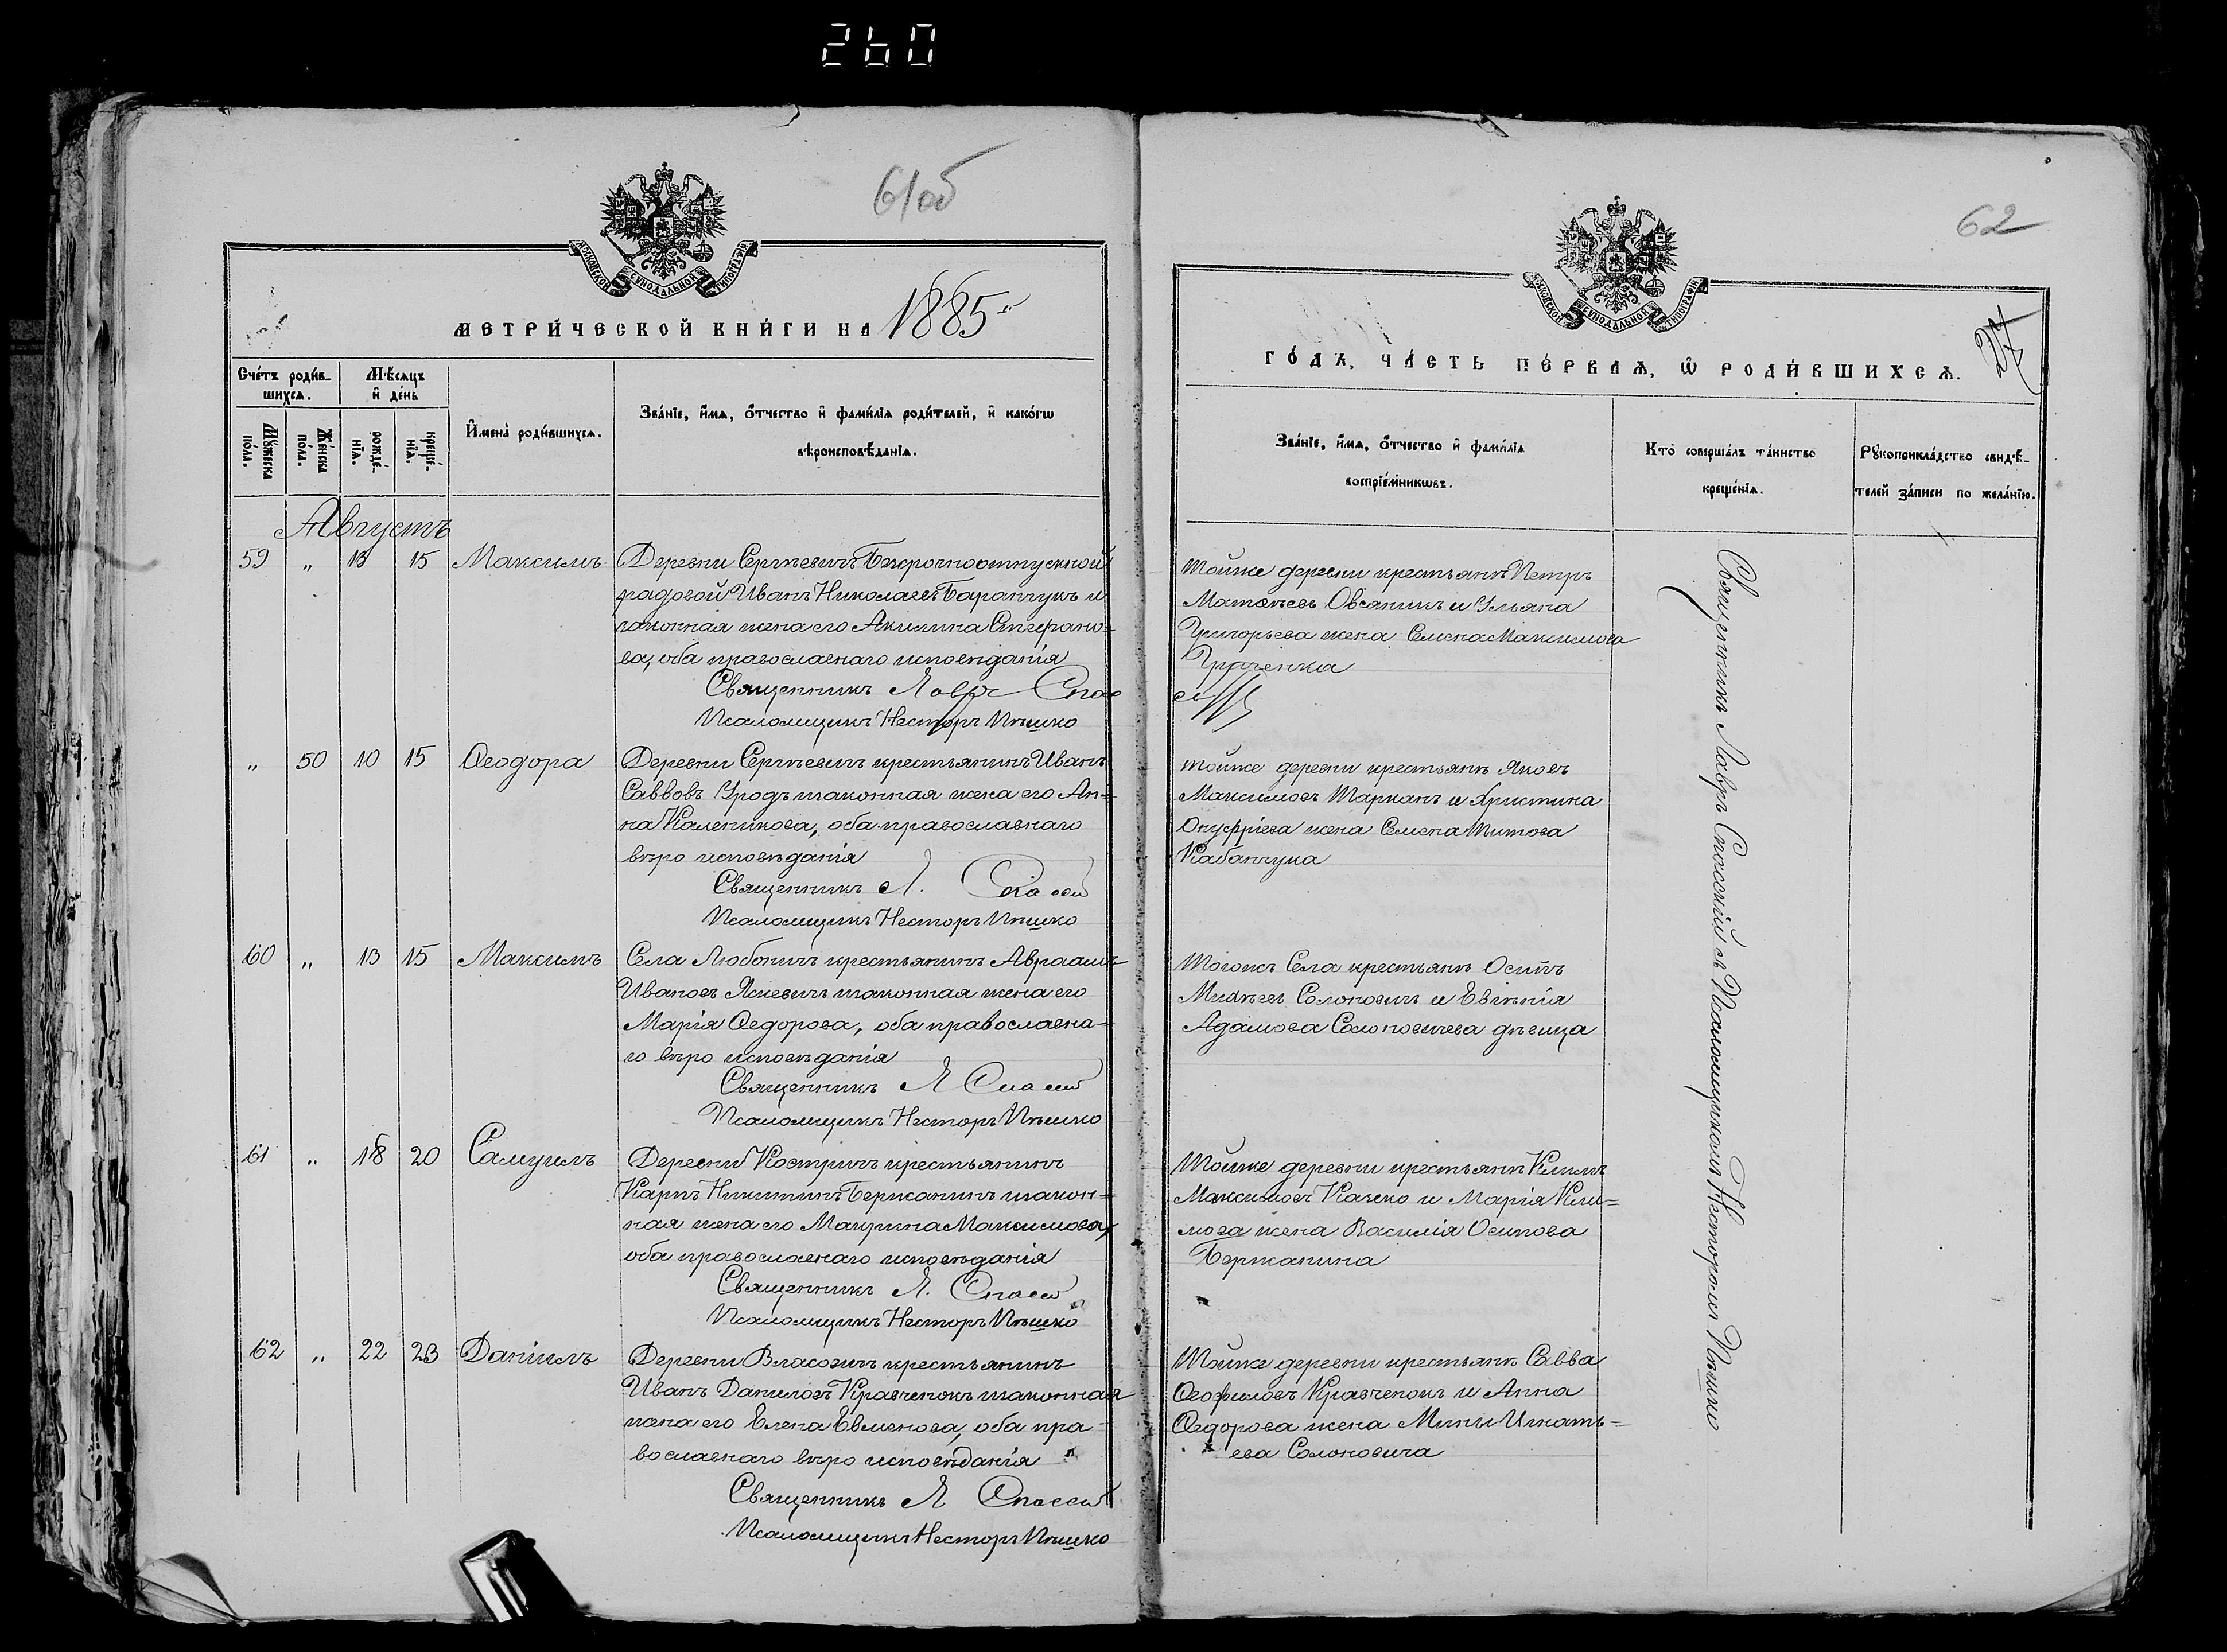 260
61об
МОСКОВСКОЙ СѴНОДАЛЬНОЙ ТИПОГРАФІИ
МЕТРИ́ЧЕСКОЙ КНИ́ГИ НА 1885
Сче́тъ роди́в-
шихсѧ.
Мѣ́сѧцъ
и҆ де́нь
Мꙋ́жеска
по́ла.
Же́нска
по́ла.
рожде́-
нїѧ.
креще́-
нїѧ.
И҆мена̀ роди́вшихсѧ.
Зва́нїе, и҆́мѧ, ѻ҆́тчество и҆ фами́лїѧ роди́телей, и҆ како́гѡ
вѣроисповѣ́данїѧ.
Августъ
59 " 13 15 Максимъ
Деревни Сергѣевичъ Безсрочноотпускной
рядовой Иванъ Николаевъ Баранчукъ и
законная жена его Акилина Стефано-
ва, оба православнаго исповѣданія
Священникъ Лавръ Спас
Псаломщикъ Несторъ Пѣшко
" 50 10 15 Ѳеодора
Деревни Сергѣевичъ крестьянинъ Иванъ
Саввовъ Уродъ законная жена его Ан-
на Каленикова, оба православнаго
вѣро исповѣданія
Священникъ Л.
Псаломщикъ Несторъ Пѣшко
60 " 13 15 Максимъ
Села Любоничъ крестьянинъ Авраамъ
Ивановъ Яскевичъ законная жена его
Марія Ѳедорова, оба православна-
го вѣро исповѣданія
Священникъ Л
Псаломщикъ Несторъ Пѣшко
61 " 18 20 Самуилъ
Деревни Костричъ крестьянинъ
Карпъ Никитинъ Бержанинъ закон-
ная жена его Макрина Максимова,
оба православнаго исповѣданія
Священникъ Л.
Псаломщикъ Несторъ Пѣшко
62 " 22 23 Даніилъ
Деревни Власовичъ крестьянинъ
Иванъ Даниловъ Кравченокъ законная
жена его Елена Евменова, оба пра-
вославнаго вѣро исповѣданія
Священникъ Л
Псаломщикъ Несторъ Пѣшко
62
МОСКОВСКОЙ СѴНОДАЛЬНОЙ ТИПОГРАФІИ
ГО́ДА, ЧА́СТЬ ПЕ́РВАѦ, Ѡ҆ РОДИ́ВШИХСѦ.
Зва́нїе, и҆́мѧ, ѻ҆́тчество и҆ фами́лїѧ
воспрїе́мникѡвъ.
Кто̀ соверша́лъ та́инство
креще́нїѧ.
Рꙋкоприкла́дство свидѣ́-
телей за́писи по жела́нїю.
Тойже деревни крестьянъ Петръ
Матвѣевъ Овсяникъ и Ульяна
Григорьева жена Семена Максимова
тойже деревни крестьянъ Яковъ
Максимовъ Тарканъ и Христина
Онуфріева жена Семена Титова
Кабанчука
Тогожъ Села крестьянъ Осипъ
Михѣевъ Солоновичъ и Евгенія
Адамова Солоновичева дѣвица
Тойже деревни крестьянъ Климъ
Максимовъ Качко и Марія Кли-
мова жена Василія Осипова
Бержанина
Тойже деревни крестьянъ Савва
Ѳеофиловъ Кравченокъ и Анна
Ѳедорова жена Мины Игнать-
ева Солоновича
Священникъ Лавръ Спасскій съ Псаломщикомъ Несторомъ Пѣшко